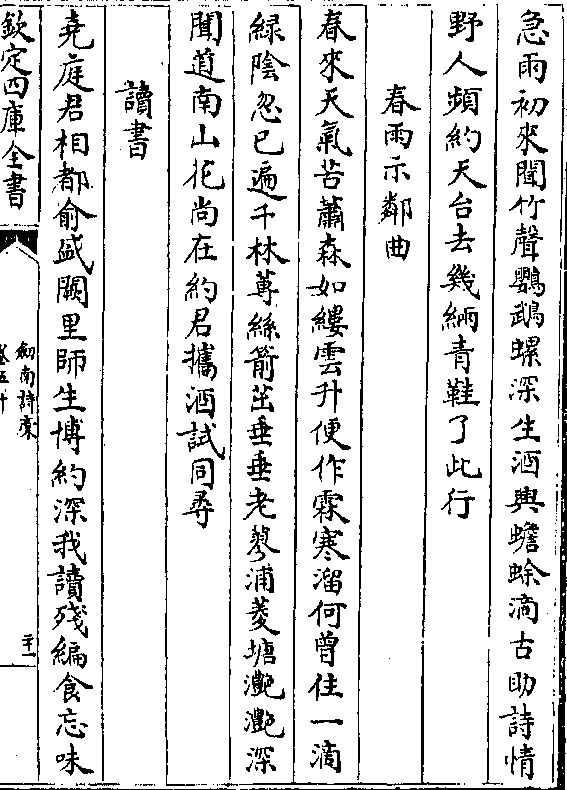 急雨初來聞竹聲鸚鵡螺深生酒興蟾蜍滴古助詩情
野人頻約天台去幾緉青鞋了此行
春雨示鄰曲
春來天氣苦蕭森如縷雲升便作霖寒溜何曾住一滴
緑陰忽已遍千林蓴絲箭茁垂垂老蓼浦菱塘灔灔深
聞道南山花尚在約君攜酒試同尋
讀書
堯庭君相都俞盛闕里師生博約深我讀殘編食忘味
欽定四庫全書
劒南詩稾
卷五十
二十一